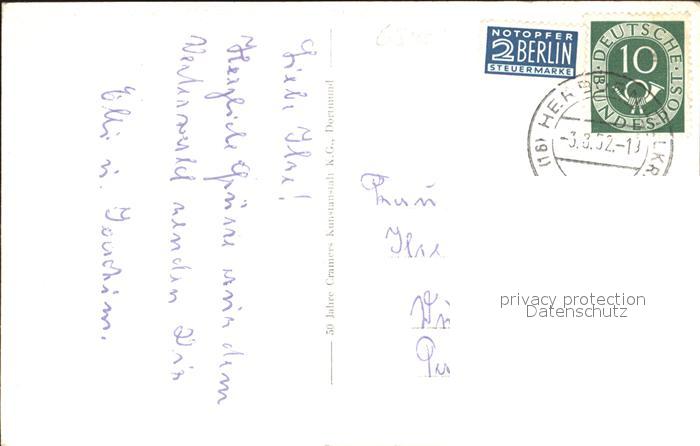 Liebe Ilse!
Herzliche Grüsse aus dem
Westerwald senden Dir
Elli u. Joachim.
50 Jahre Cramers Kunstanstalt K.G., Dortmund
NOTOPFER
2 BERLIN
STEUERMARKE
DEUTSCHE
10
BUNDESPOST
(16) HERB
LKR
-3.8.52.-19
Frau
Ilse
privacy protection
Datenschutz